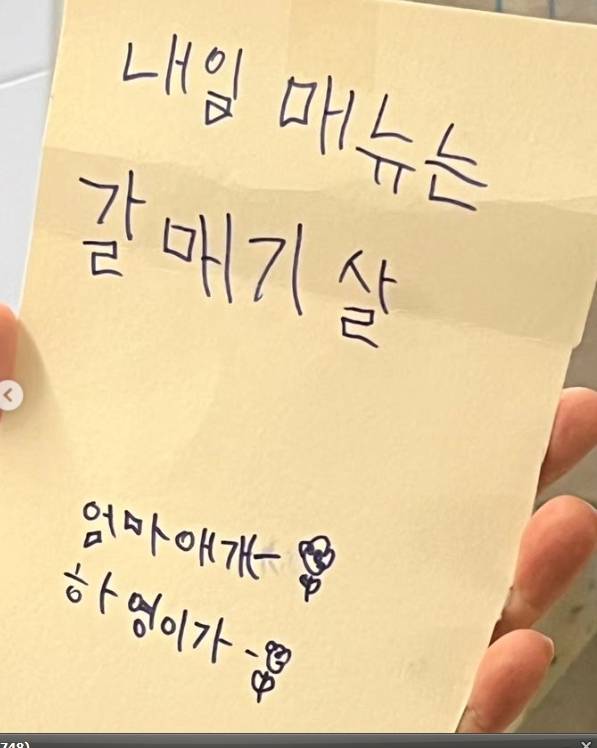 내임 매뉴는
갈매기 살
엄마애개
하영이가
748)